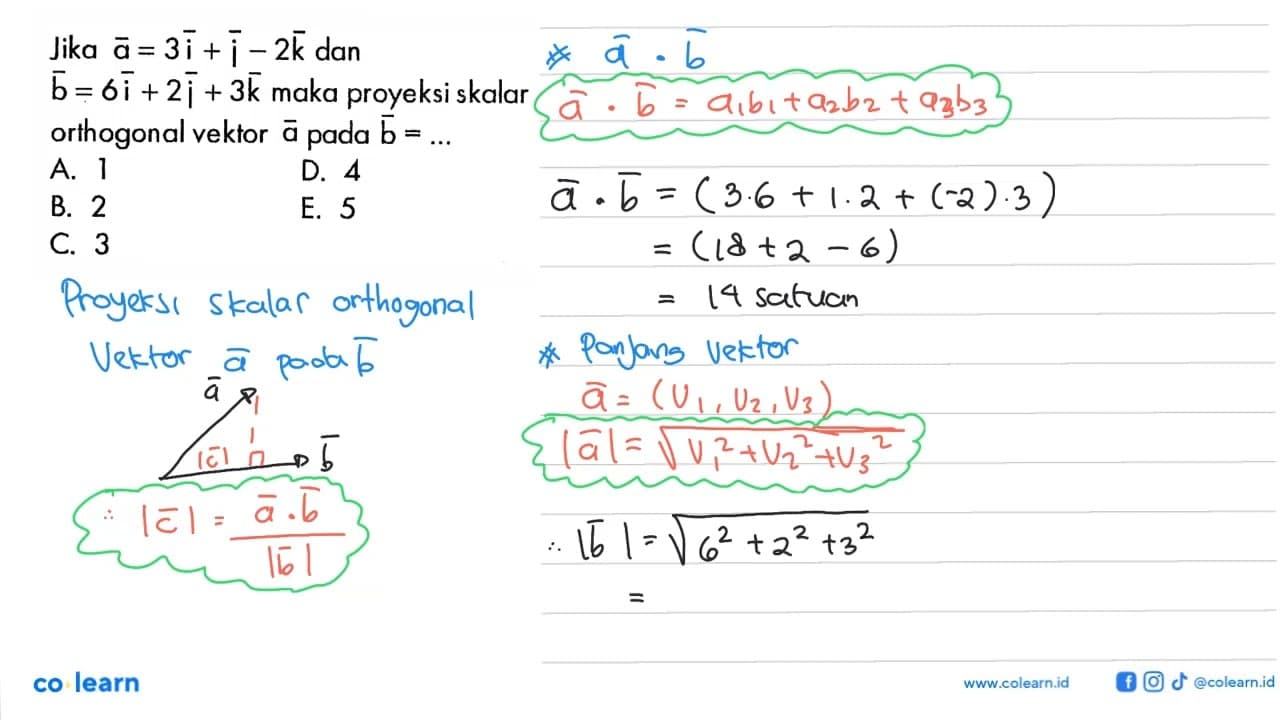 Jika a̅ = 3i̅ + j̅ − 2k̅ dan
b̅ = 6i̅ + 2j̅ + 3k̅ maka proyeksi skalar
orthogonal vektor a̅ pada b̅ = ...
A. 1 D. 4
B. 2 E. 5
C. 3
Proyeksi skalar orthogonal
Vektor a̅ pada b̅
a̅
|c̅| b̅
∴ |c̅| = a̅ . b̅ / |b̅|
* a̅ . b̅
a̅ . b̅ = a₁b₁ + a₂b₂ + a₃b₃
a̅ . b̅ = (3.6 + 1.2 + (-2).3)
= (18 + 2 − 6)
= 14 satuan
* Panjang Vektor
a̅ = (V₁, V₂, V₃)
|a̅| = √V₁² + V₂² + V₃²
∴ |b̅| = √6² + 2² + 3²
=
co learn
www.colearn.id @colearn.id